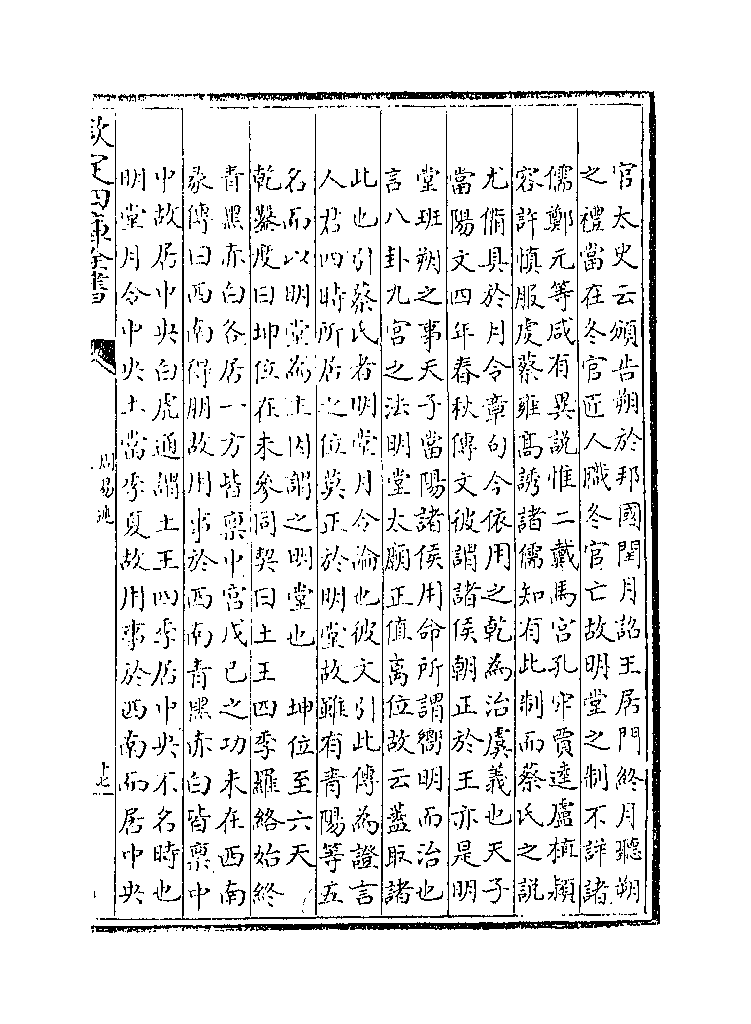 官太史云頒告朔於邦國閏月詔王居門終月聽朔
之禮當在冬官匠人職冬官亡故明堂之制不詳諸
儒鄭元等咸有異說惟二戴馬宮孔牢賈逵盧植潁
容許慎服虔蔡雍高誘諸儒知有此制而蔡氏之說
尤備具於月令章句今依用之乾為治虞義也天子
當陽文四年春秋傳文彼謂諸侯朝正於王亦是明
堂班朔之事天子當陽諸侯用命所謂嚮明而治也
言八卦九宮之法明堂太廟正值离位故云蓋取諸
此也引蔡氏者明堂月令論也彼文引此傳為證言
人君四時所居之位莫正於明堂故雖有青陽等五
名而以明堂為主因謂之明堂也　坤位至六天
乾鑿度曰坤位在未參同契曰土王四季羅絡始終
青黑赤白各居一方皆禀中宮戊己之功未在西南
彖傳曰西南得朋故用事於西南青黑赤白皆禀中
中故居中央白虎通謂土王四季居中央不名時也
明堂月令中央土當季夏故用事於西南而居中央
欽定四庫全書
周易述
十七